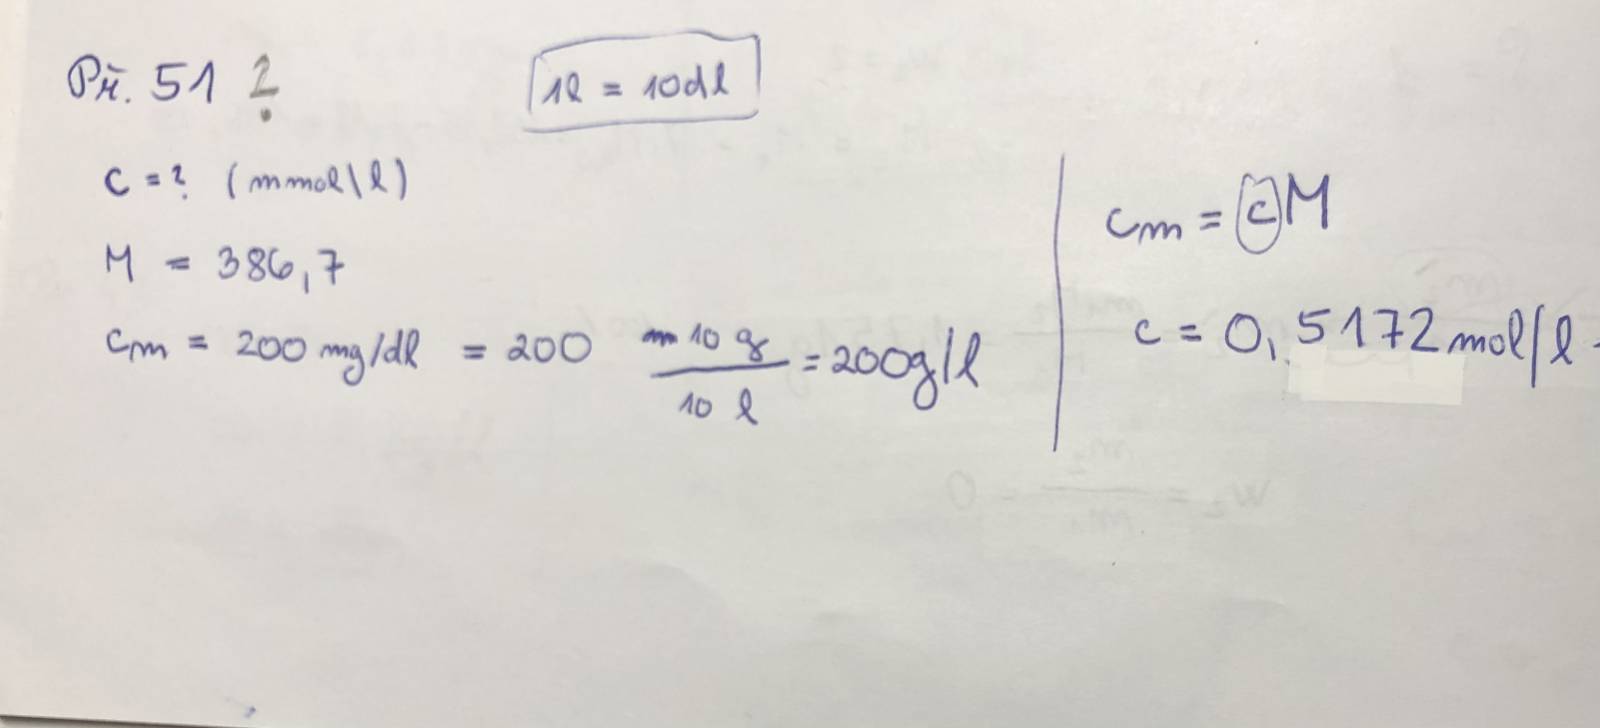 Př. 51 ?
1l = 10dl
c = ? (mmol\l)
M = 386,7
cm = 200 mg/dl = 200 10 g / 10 l = 200g/l
cm = cM
c = 0,5172 mol/l